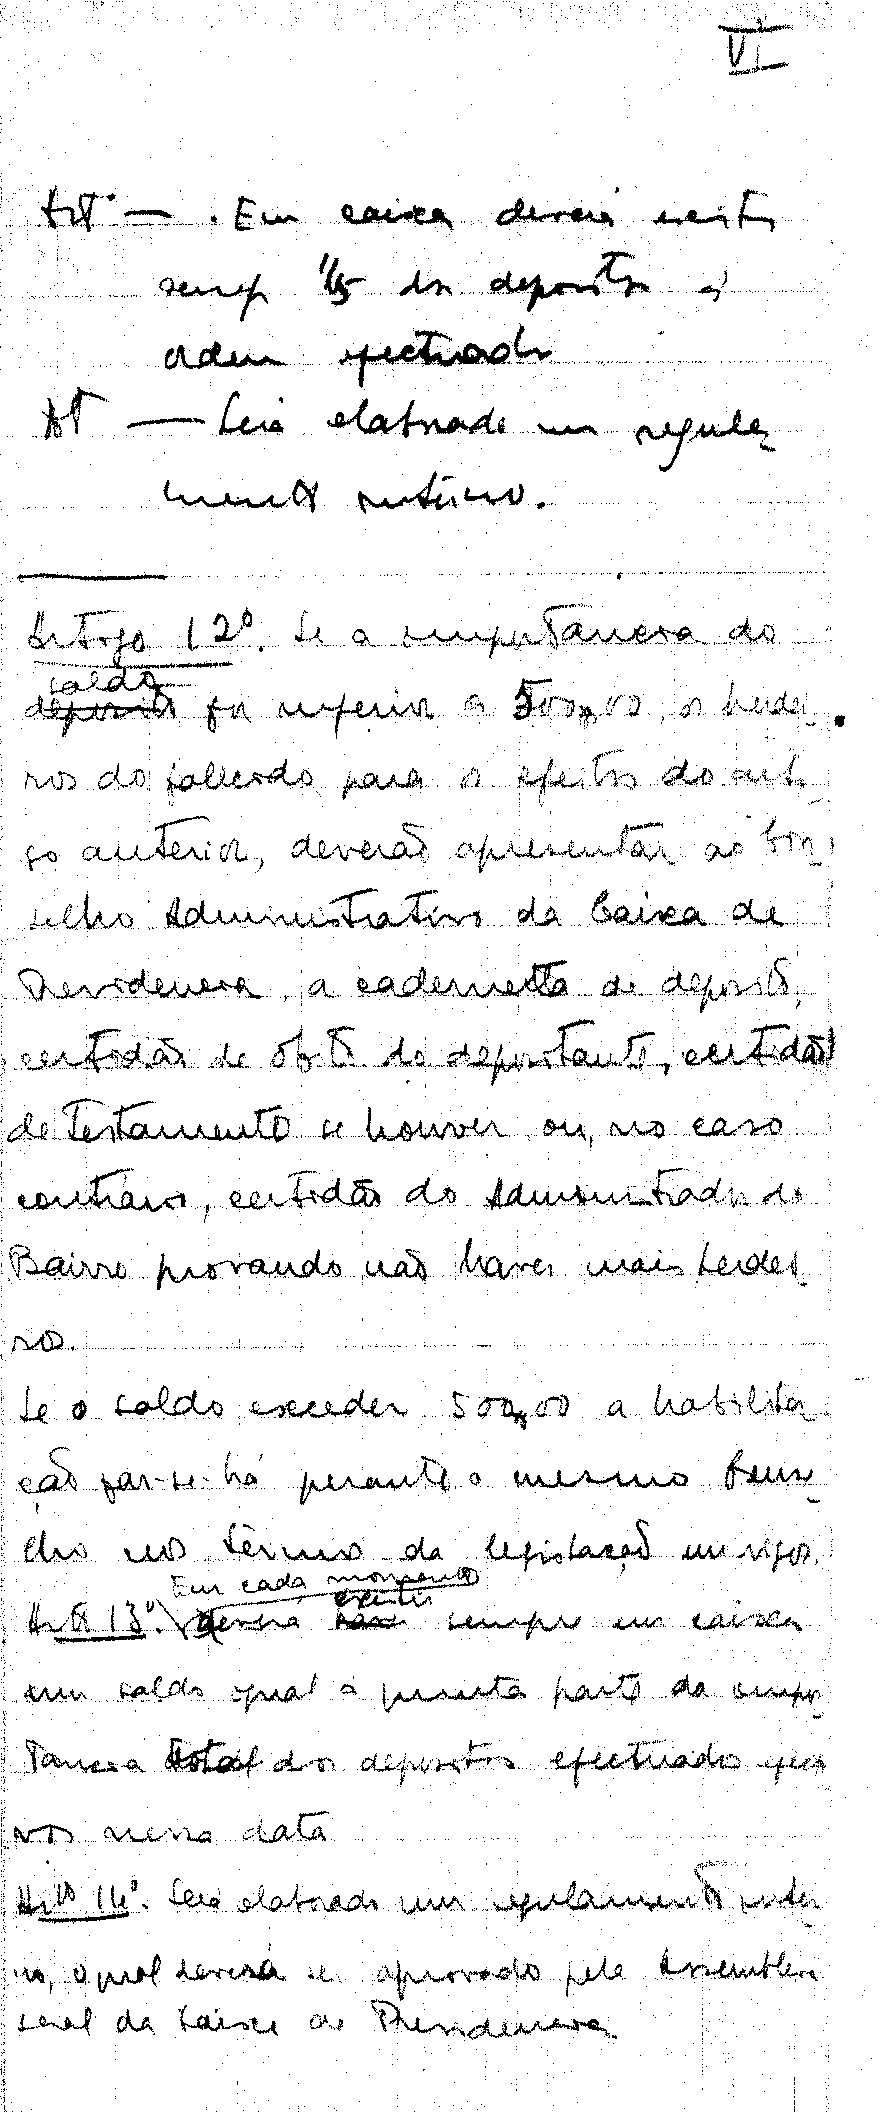 VI
Artº — . Em caixa deverá existir
sempre 1/5 dos depositos á
ordem efectuados
Art — Será elaborado um regula-
mento interno.
Artigo 12º. Se a importancia do
saldo
deposito for inferior a 500,00, os herdei-
ros do falecido, para os efeitos do arti-
go anterior, deverão apresentar ao Con-
selho Administrativo da Caixa de
Previdencia, a caderneta de deposito,
certidão de obito do depositante, certidão
de testamento se houver ou, no caso
contrario, certidão do Administrador do
Bairro provando não haver mais herdei-
ros.
Se o saldo exceder 500,00 a habilita-
ção far-se-há perante o mesmo Conse-
lho nos têrmos da legislação em vigor.
Em cada momento
existir
Artº 13º. deverá haver sempre em caixa
um saldo igual á quinta parte da impor-
tancia total dos depositos efectuados
nessa data
Artº 14º. Será elaborado um regulamento inter-
no, o qual deverá ser aprovado pela Assembleia
Geral da Caixa de Previdencia